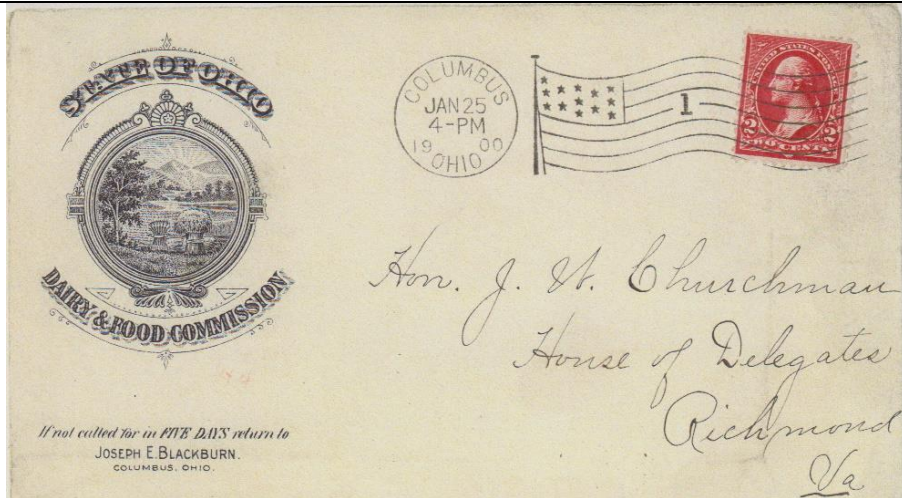 STATE OF OHIO
DAIRY & FOOD COMMISSION
If not called for in FIVE DAYS return to
JOSEPH E. BLACKBURN.
COLUMBUS, OHIO.
COLUMBUS
JAN 25
4-PM
19 00
OHIO
1
UNITED STATES POSTAGE
2 TWO CENTS 2
Hon. J. W. Churchman
House of Delegates
Richmond
Va